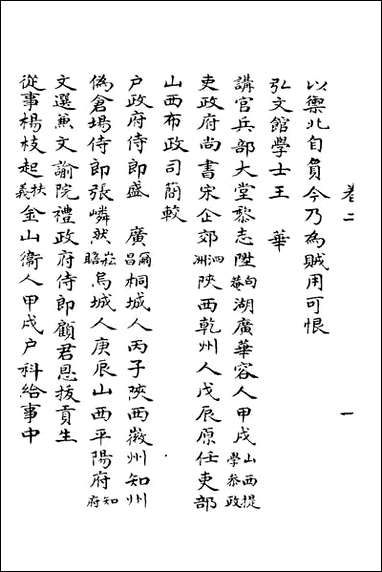 卷二 一
以禦北自負今乃為賊用可恨
弘文館學士王 華
講官兵部大堂黎志陞向菴湖廣華容人甲戌山西提學參政
吏政府尚書宋企郊泗洲陝西乾州人戊辰原任吏部
山西布政司簡較
户政府侍郎盛 廣爾昌桐城人丙子陝西徽州知州
偽倉場侍郎張嶙然崧昭烏城人庚辰山西平陽府知府
文選兼文諭院禮政府侍郎顧君恩拔貢生
從事楊枝起扶義金山衞人甲戌户科給事中